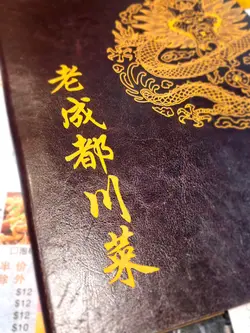 老成都川菜
半价
$12
$12
$12
$10